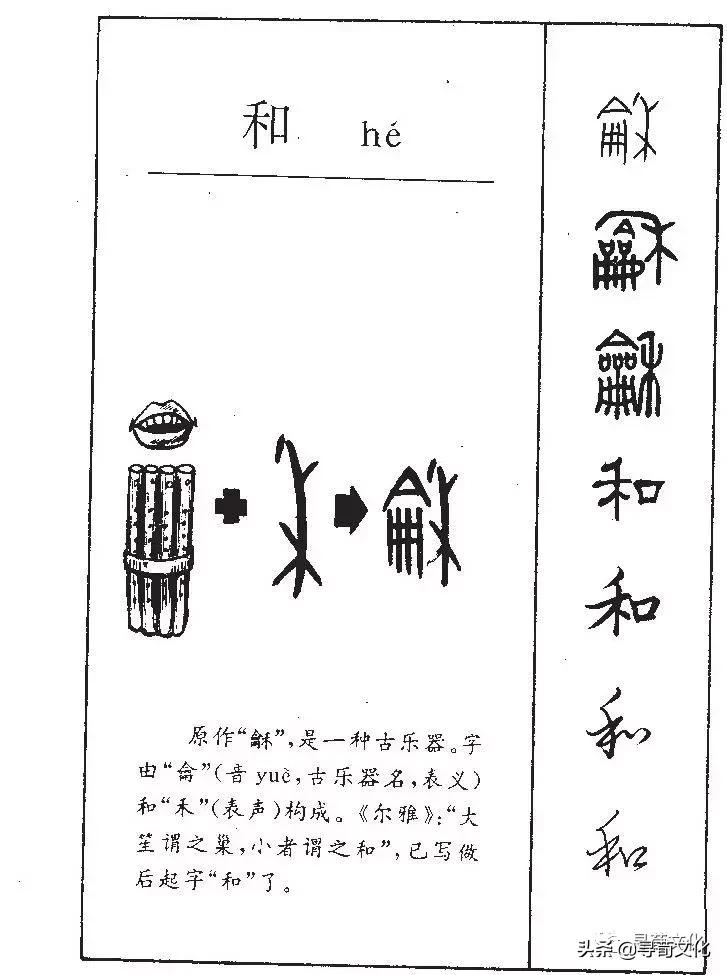 和 hé
原作“龢”,是一种古乐器。字
由“龠”(音 yuè,古乐器名,表义)
和“禾”(表声)构成。《尔雅》:“大
笙谓之巢,小者谓之和”,已写做
后起字“和”了。
龢
龢
龢
龢
和
和
和
和
头条 @